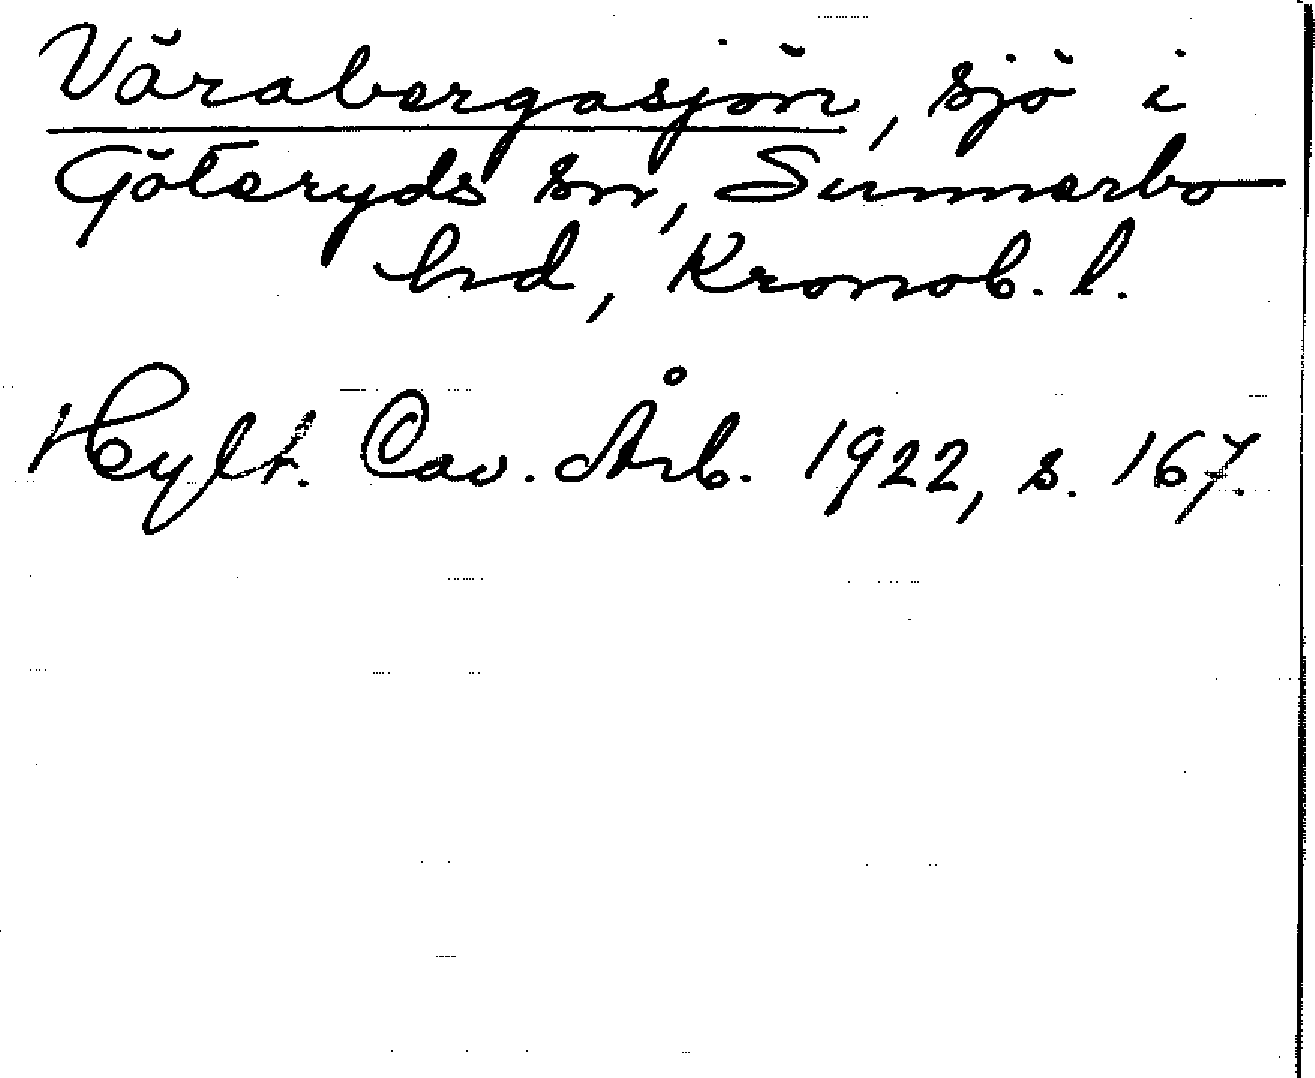 Värabergasjön, sjö i
Göteryds sn, Sunnerbo
hd, Kronob. l.
Hylt. Cav. Årb. 1922, s. 167.